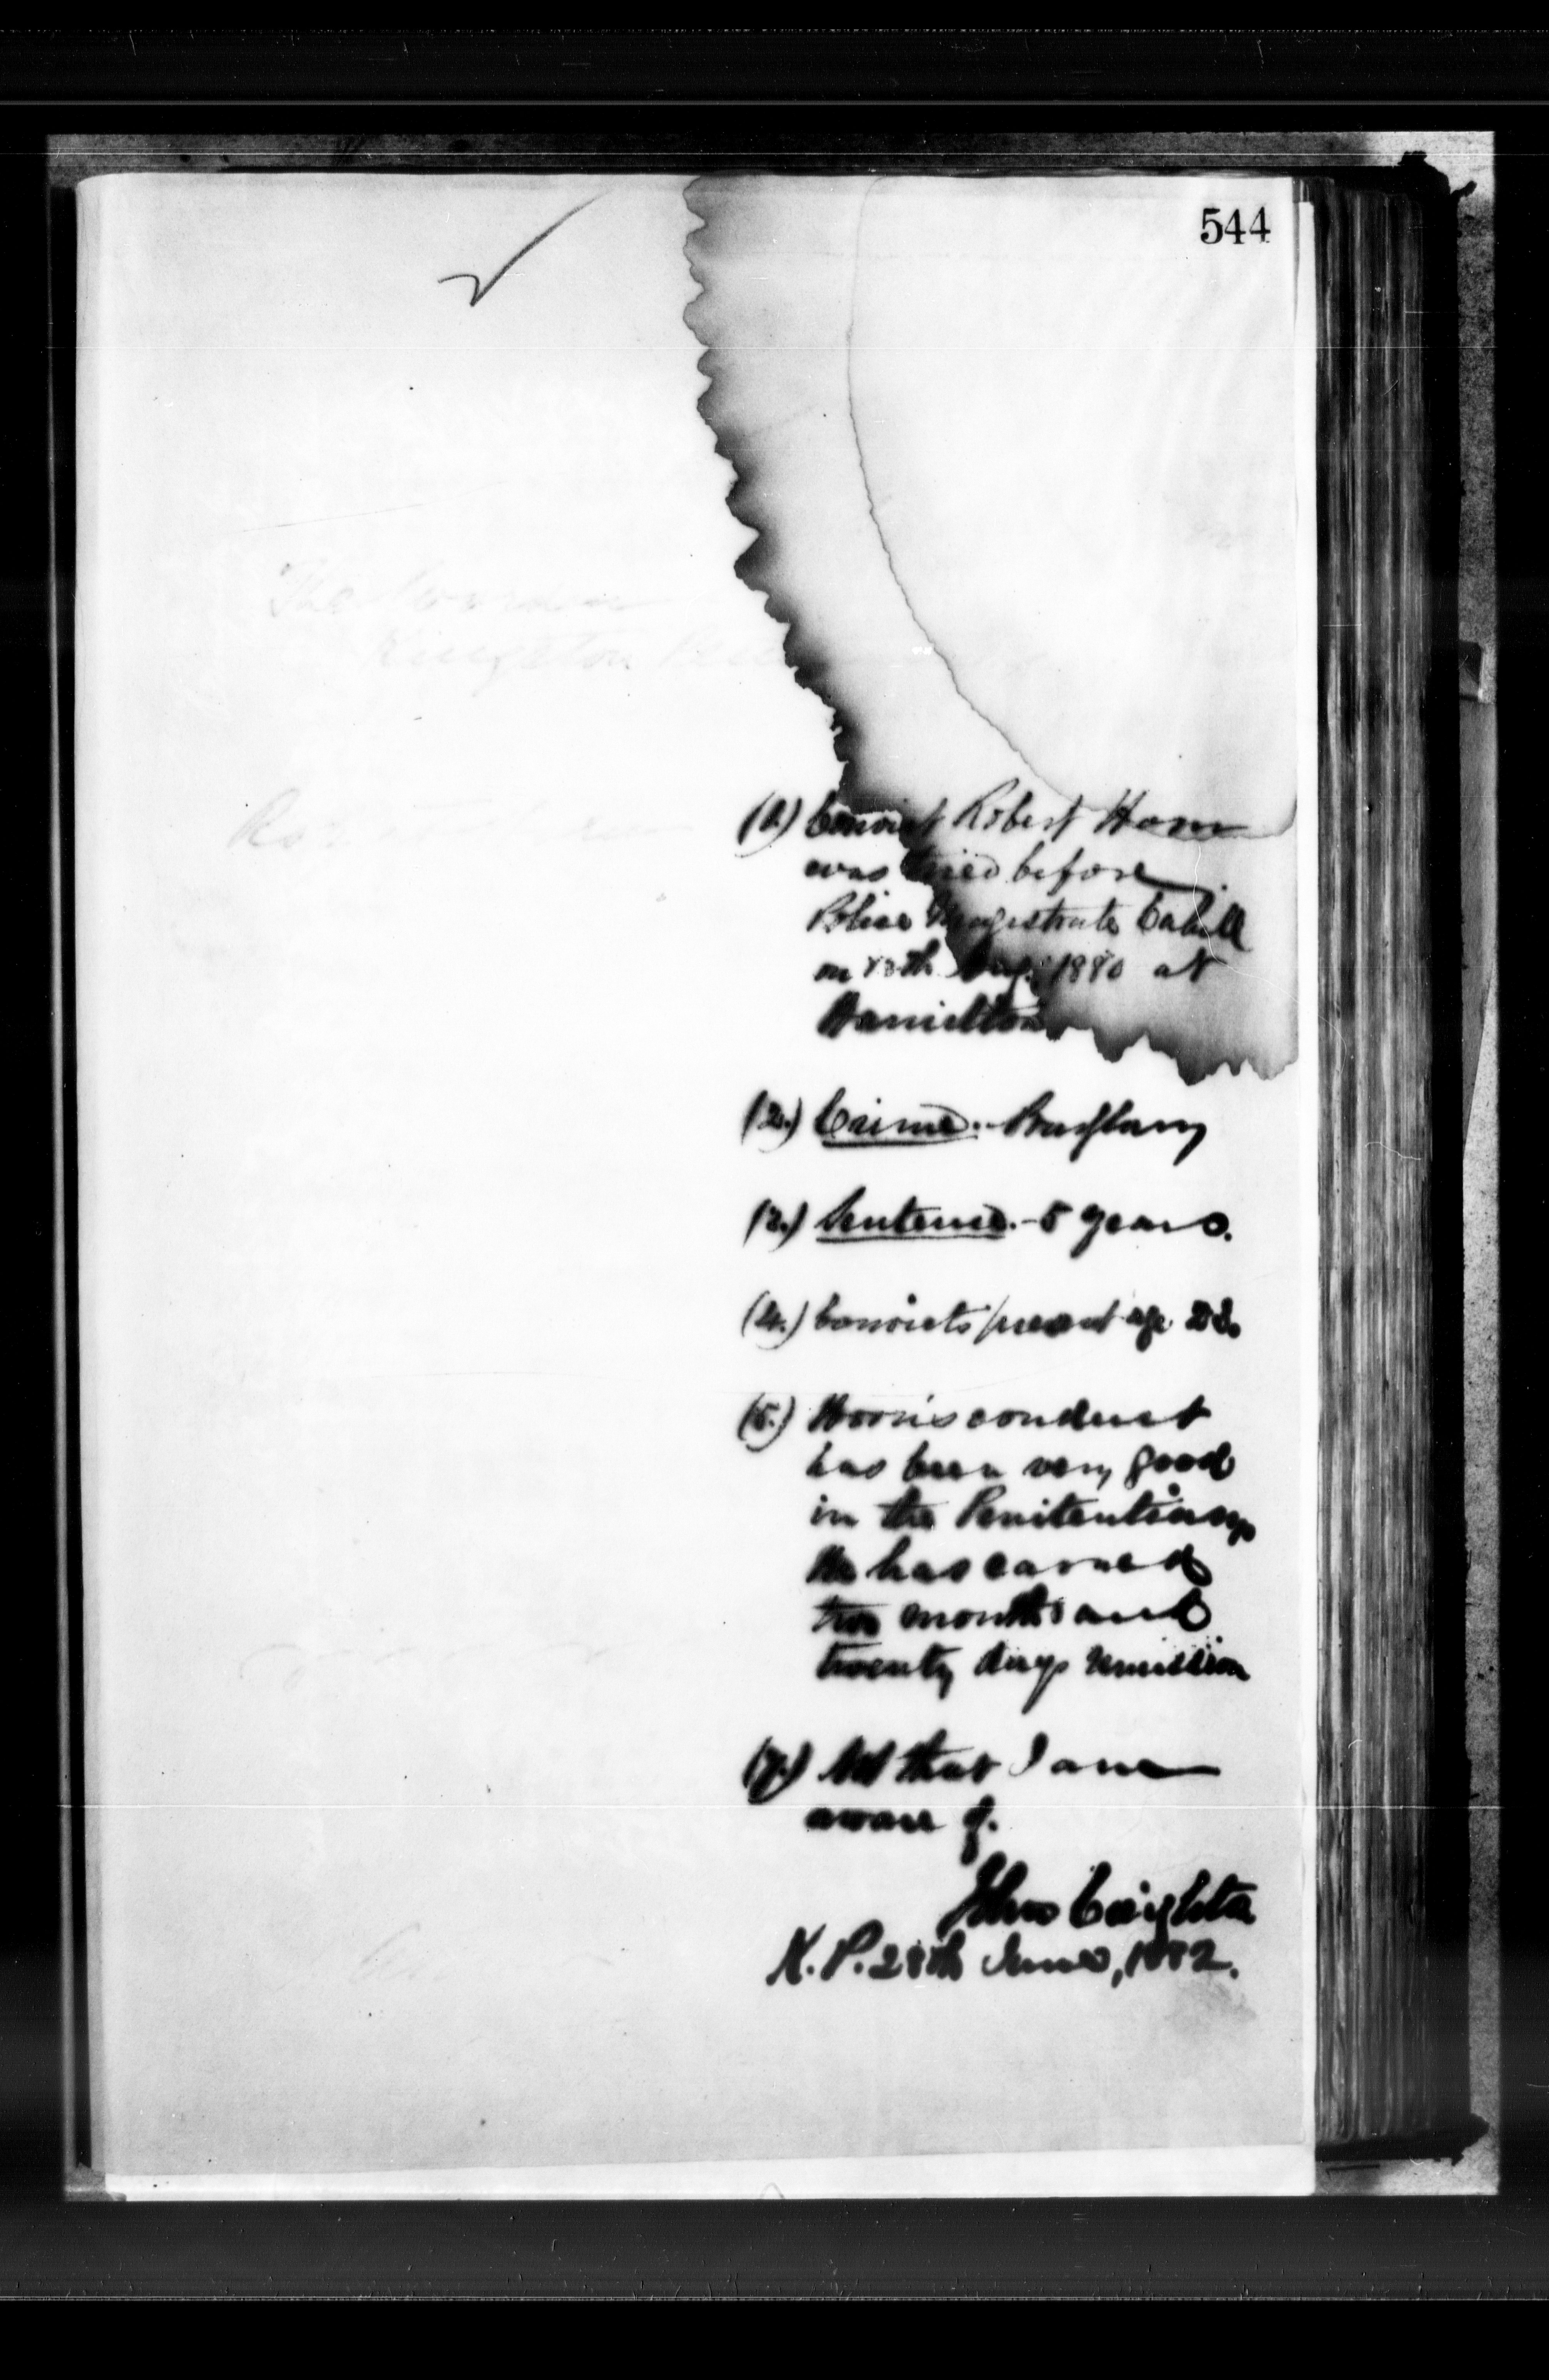 544
The Warden
Kingston
(1.) Convict Robert Horn
was tried before
Police Magistrate Cahill
on Aug. 1880 at
Hamilton
(2.) Crime. - Burglary
(3.) Sentence. - 5 years.
(4.) Convicts present age
(5.) Horn's conduct
has been very good
in the Penitentiary
He has earned
two months and
twenty days remission
(7.) Not that I am
aware of.
John Creighton
K. P. 28th June, 1882.